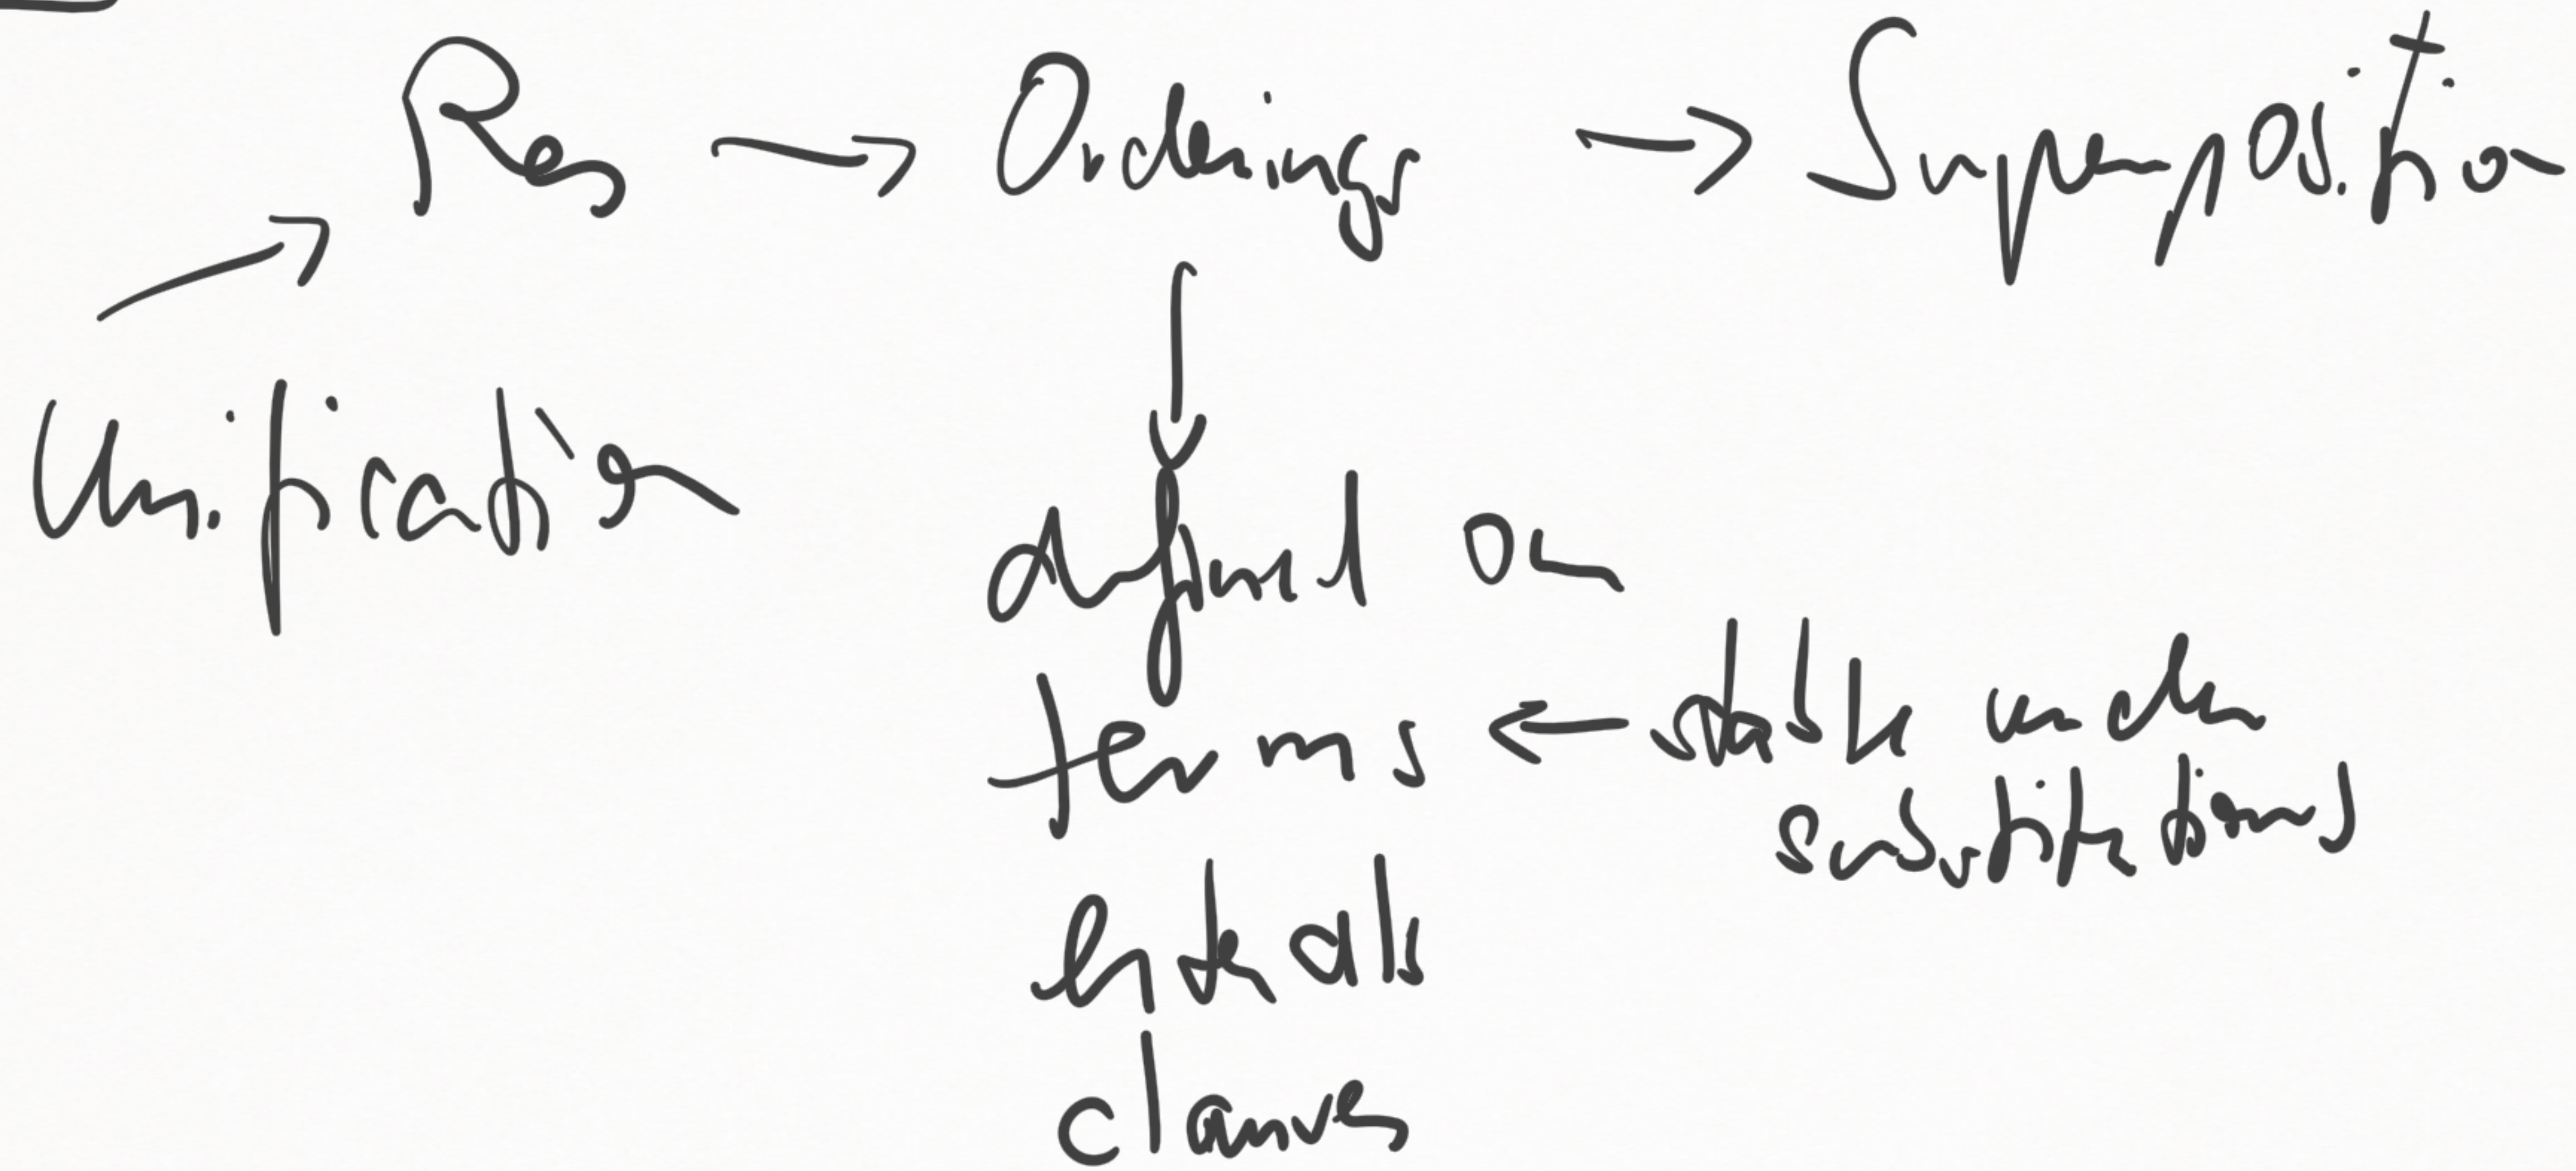 Res → Orderings → Superposition
Unification
↓
defined on
terms ← stable under
substitutions
literals
clauses